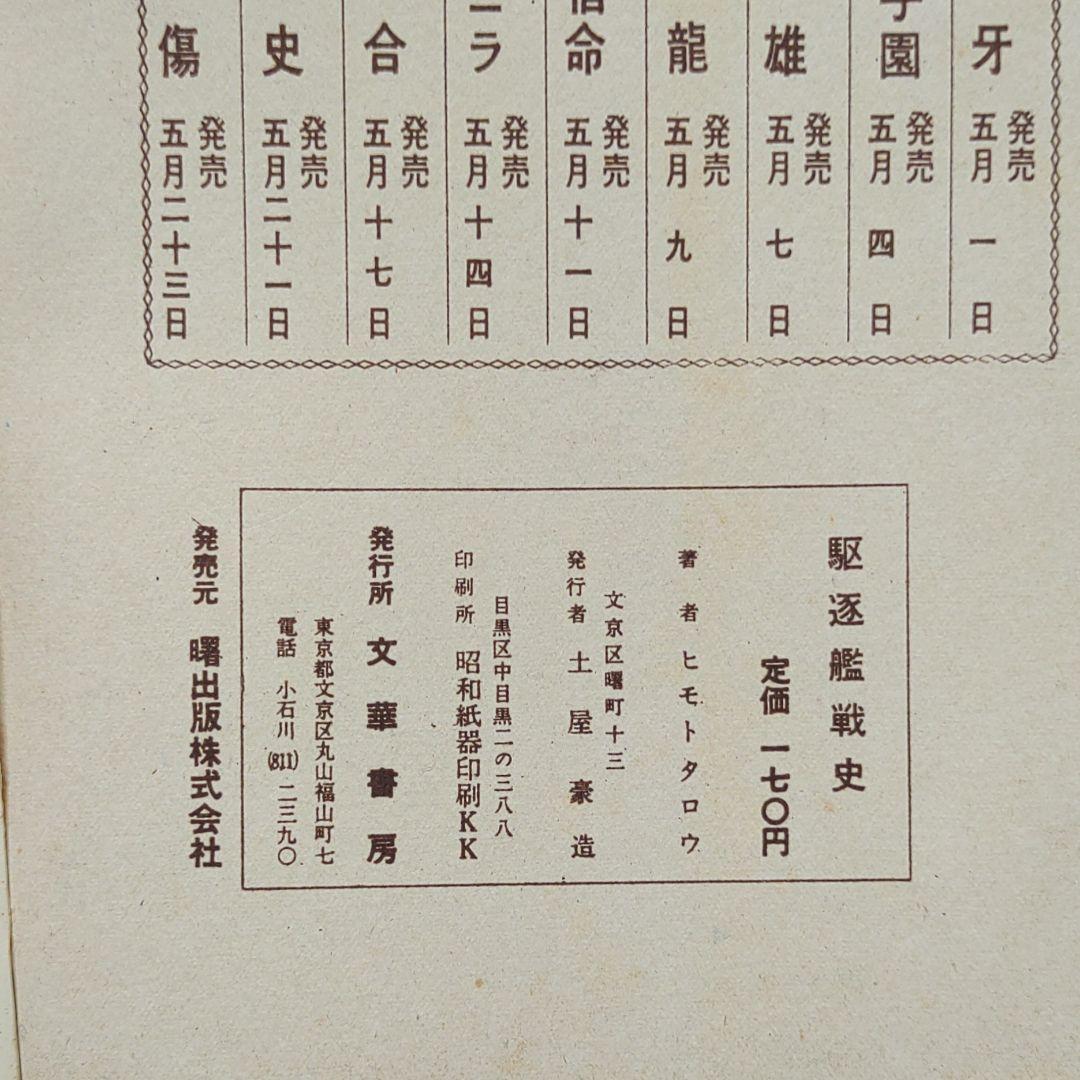 牙
発売
五月一日
園
発売
五月四日
雄
発売
五月七日
龍
発売
五月九日
命
発売
五月十一日
ラ
発売
五月十四日
合
発売
五月十七日
史
発売
五月二十一日
傷
発売
五月二十三日
駆逐艦戦史
定価 一七〇円
著者 ヒモトタロウ
文京区曙町十三
発行者 土屋豪造
目黒区中目黒二の三八八
印刷所 昭和紙器印刷KK
発行所 文華書房
東京都文京区丸山福山町七
電話 小石川(811)二三九〇
発売元 曙出版株式会社